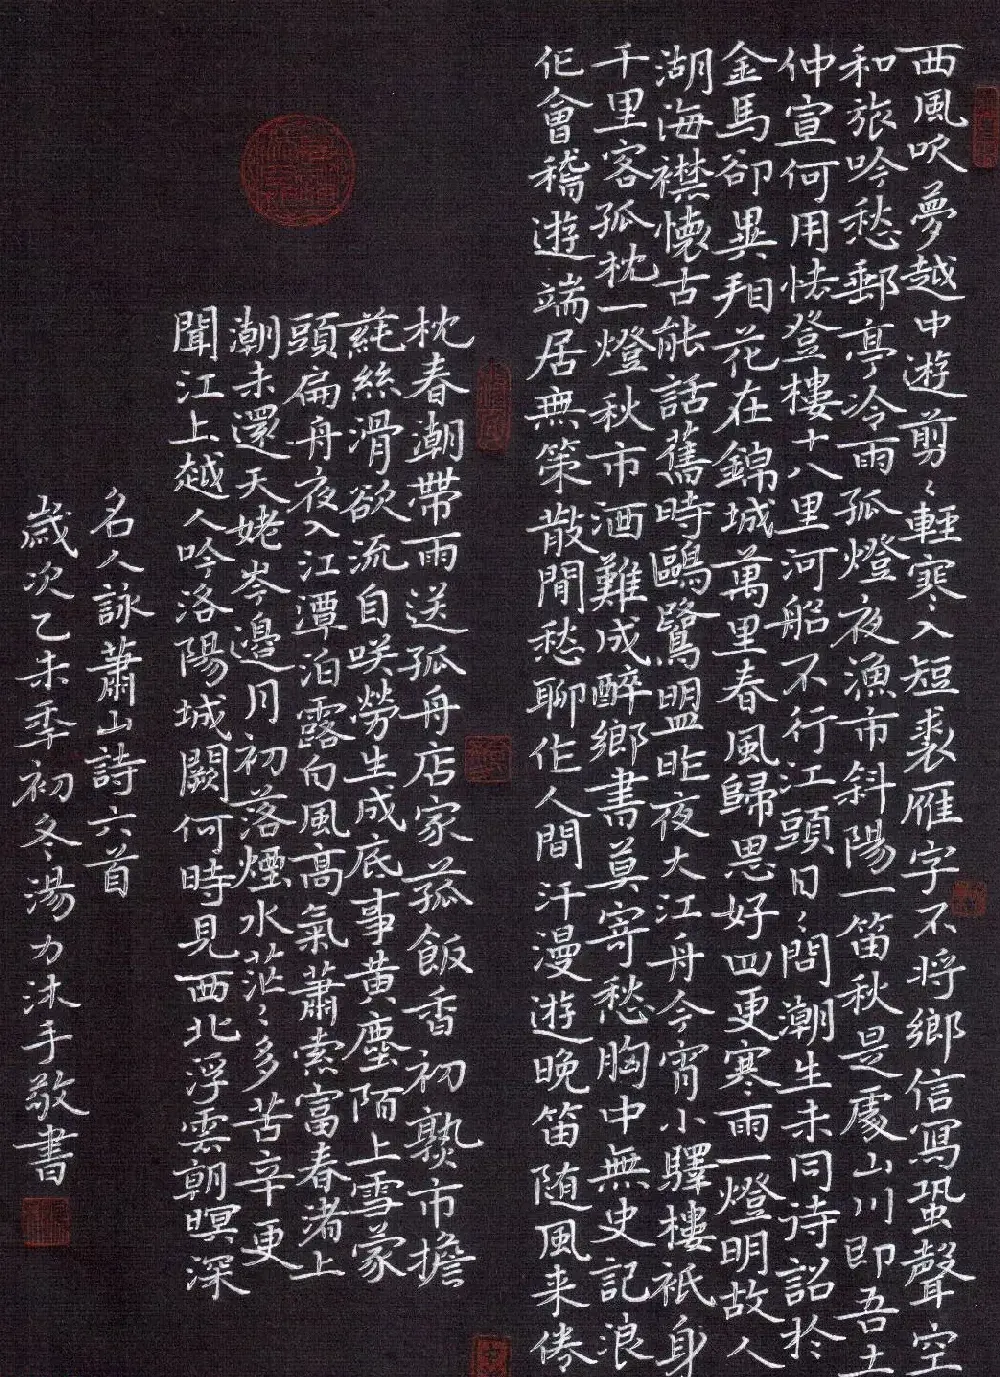 西風吹夢越中遊剪〻輕寒〻入短裘雁字不將鄉信寫蛩聲空
和旅吟愁郵亭冷雨孤燈夜漁市斜陽一笛秋是處山川即吾土
仲宣何用怯登樓十八里河船不行江頭日〻問潮生未同詩詔於
金馬卻異相花在錦城萬里春風歸思好四更寒雨一燈明故人
湖海襟懷古能話舊時鷗鷺盟昨夜大江舟今宵小驛樓祇身
千里客孤枕一燈秋市酒難成醉鄉書莫寄愁胸中無史記浪
作會稽遊端居無策散閒愁聊作人間汗漫遊晚笛随風来倦
枕春潮帶雨送孤舟店家菰飯香初熟市擔
蒓絲滑欲流自咲勞生成底事黃塵陌上雪蒙
頭扁舟夜入江潭泊露向風高氣蕭索富春渚上
潮未還天姥岑邊月初落煙水茫〻多苦辛更
聞江上越人吟洛陽城闕何時見西北浮雲朝暝深
名人詠蕭山詩六首
歲次乙未季初冬湯力沐手敬書